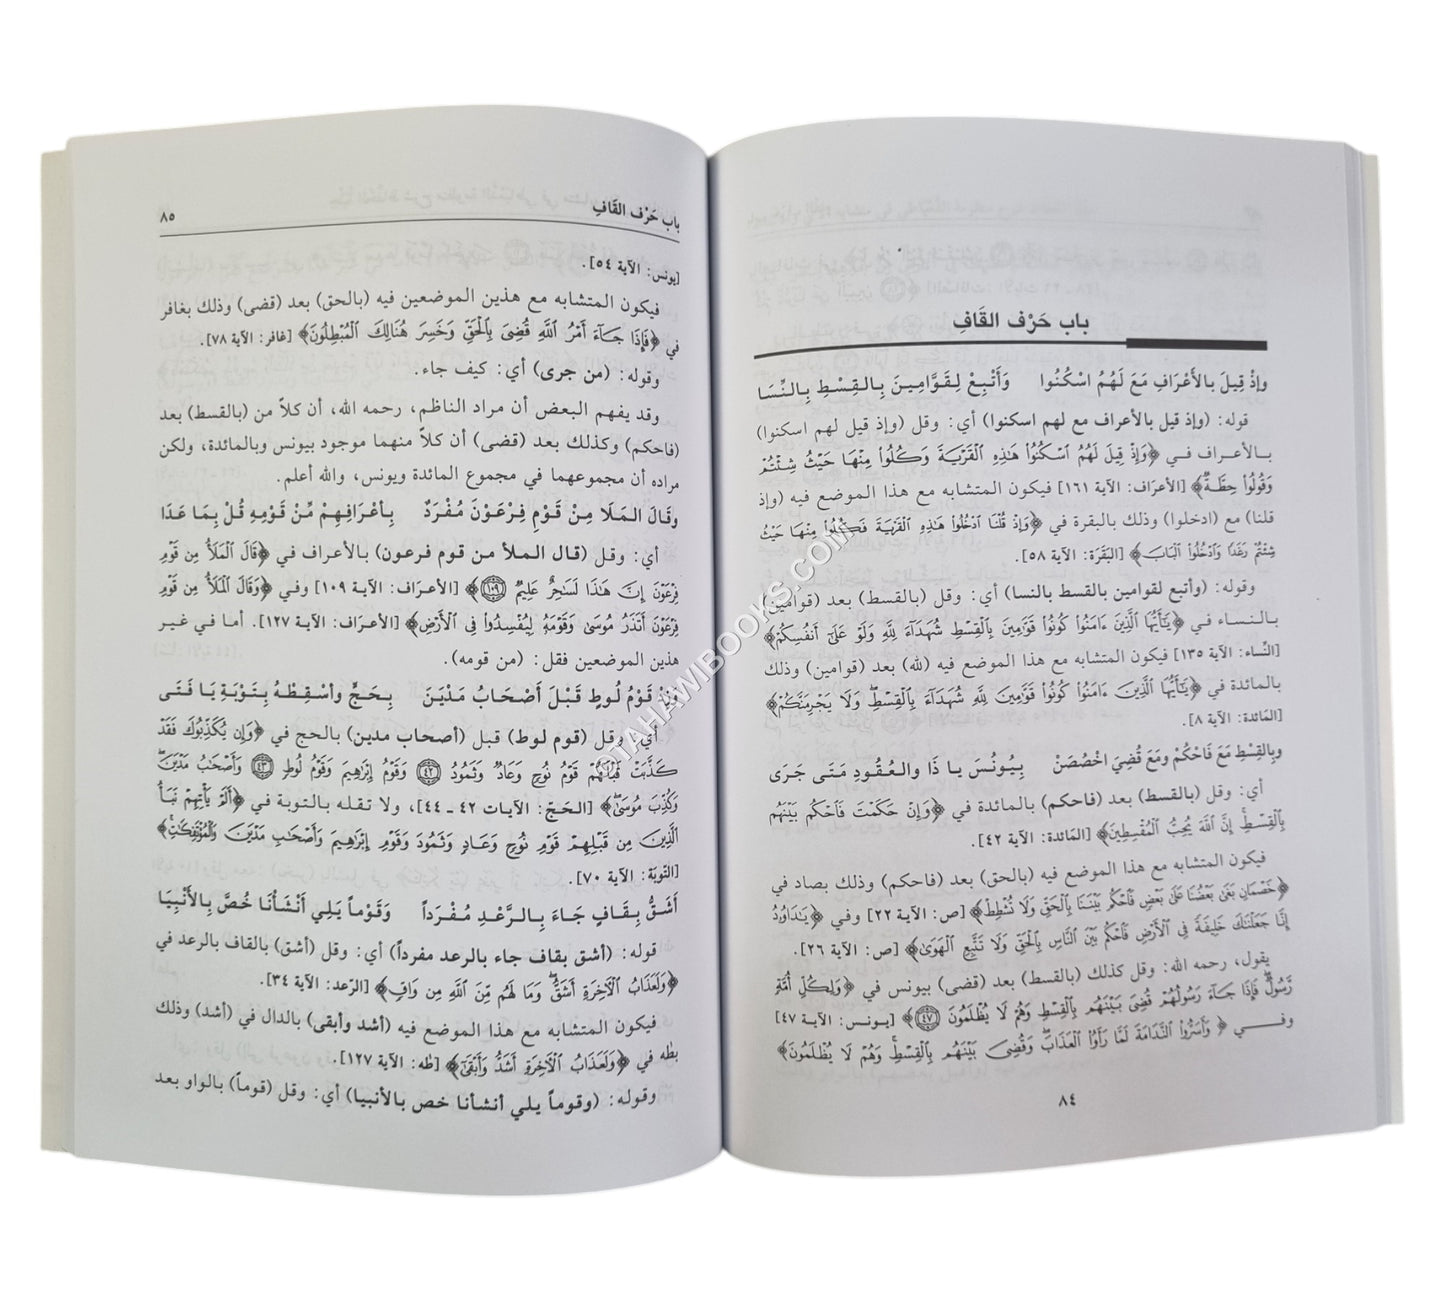 باب حَرْف القَافِ
وإذْ قِيلَ بالأَعْرَافِ مَعَ لَهُمُ اسْكُنُوا وَأَتْبِعْ لِقَوَّامِينَ بِالقِسْطِ بِالنِّسَا
قوله: (وإذ قيل بالأعراف مع لهم اسكنوا) أي: وقل (وإذ قيل لهم اسكنوا)
بالأعراف في ﴿وَإِذْ قِيلَ لَهُمُ اسْكُنُوا هَٰذِهِ الْقَرْيَةَ وَكُلُوا مِنْهَا حَيْثُ شِئْتُمْ
وَقُولُوا حِطَّةٌ﴾ [الأعرَاف: الآية ١٦١] فيكون المتشابه مع هذا الموضع فيه (وإذ
قلنا) مع (ادخلوا) وذلك بالبقرة في ﴿وَإِذْ قُلْنَا ادْخُلُوا هَٰذِهِ الْقَرْيَةَ فَكُلُوا مِنْهَا حَيْثُ
شِئْتُمْ رَغَدًا وَادْخُلُوا الْبَابَ﴾ [البَقَرَة: الآية ٥٨].
وقوله: (وأتبع لقوامين بالقسط بالنسا) أي: وقل (بالقسط) بعد (قوامين)
بالنساء في ﴿يَٰأَيُّهَا الَّذِينَ ءَامَنُوا كُونُوا قَوَّٰمِينَ بِالْقِسْطِ شُهَدَآءَ لِلَّهِ وَلَوْ عَلَىٰٓ أَنفُسِكُمْ﴾
[النِّساء: الآية ١٣٥] فيكون المتشابه مع هذا الموضع فيه (لله) بعد (قوامين) وذلك
بالمائدة في ﴿يَٰأَيُّهَا الَّذِينَ ءَامَنُوا كُونُوا قَوَّٰمِينَ لِلَّهِ شُهَدَآءَ بِالْقِسْطِ وَلَا يَجْرِمَنَّكُمْ﴾
[المَائدة: الآية ٨].
وبِالقِسْطِ مَعَ فَاحْكُمْ ومَعَ قُضِيَ اخْصُصَنْ بِيُونُسَ يا ذَا والعُقُودِ مَتَى جَرَى
أي: وقل (بالقسط) بعد (فاحكم) بالمائدة في ﴿وَإِنْ حَكَمْتَ فَاحْكُم بَيْنَهُم
بِالْقِسْطِ إِنَّ اللَّهَ يُحِبُّ الْمُقْسِطِينَ﴾ [المَائدة: الآية ٤٢].
فيكون المتشابه مع هذا الموضع فيه (بالحق) بعد (فاحكم) وذلك بصاد في
﴿خَصْمَانِ بَغَىٰ بَعْضُنَا عَلَىٰ بَعْضٍ فَاحْكُم بَيْنَنَا بِالْحَقِّ وَلَا تُشْطِطْ﴾ [ص: الآية ٢٢] وفي ﴿يَٰدَاوُۥدُ
إِنَّا جَعَلْنَٰكَ خَلِيفَةً فِي الْأَرْضِ فَاحْكُم بَيْنَ النَّاسِ بِالْحَقِّ وَلَا تَتَّبِعِ الْهَوَىٰ﴾ [ص: الآية ٢٦].
يقول، رحمه الله: وقل كذلك (بالقسط) بعد (قضى) بيونس في ﴿وَلِكُلِّ أُمَّةٍ
رَّسُولٌ فَإِذَا جَآءَ رَسُولُهُمْ قُضِيَ بَيْنَهُم بِالْقِسْطِ وَهُمْ لَا يُظْلَمُونَ ٤٧﴾ [يونس: الآية ٤٧]
وفي ﴿وَأَسَرُّوا النَّدَامَةَ لَمَّا رَأَوُا الْعَذَابَ وَقُضِيَ بَيْنَهُم بِالْقِسْطِ وَهُمْ لَا يُظْلَمُونَ﴾
٨٤
باب حَرْف القَافِ
٨٥
[يونس: الآية ٥٤].
فيكون المتشابه مع هذين الموضعين فيه (بالحق) بعد (قضى) وذلك بغافر
في ﴿فَإِذَا جَآءَ أَمْرُ اللَّهِ قُضِيَ بِالْحَقِّ وَخَسِرَ هُنَالِكَ الْمُبْطِلُونَ﴾ [غافر: الآية ٧٨].
وقوله: (من جرى) أي: كيف جاء.
وقد يفهم البعض أن مراد الناظم، رحمه الله، أن كلاً من (بالقسط) بعد
(فاحكم) وكذلك بعد (قضى) أن كلاً منهما موجود بيونس وبالمائدة، ولكن
مراده أن مجموعهما في مجموع المائدة ويونس، والله أعلم.
وقَالَ المَلَا مِنْ قَوْمِ فِرْعَوْنَ مُفْرَدٌ بِأعْرَافِهِمْ مِّنْ قَوْمِهِ قُلْ بِمَا عَدَا
أي: وقل (قال الملأ من قوم فرعون) بالأعراف في ﴿قَالَ الْمَلَأُ مِن قَوْمِ
فِرْعَوْنَ إِنَّ هَٰذَا لَسَٰحِرٌ عَلِيمٌ ١٠٩﴾ [الأعرَاف: الآية ١٠٩] وفي ﴿وَقَالَ الْمَلَأُ مِن قَوْمِ
فِرْعَوْنَ أَتَذَرُ مُوسَىٰ وَقَوْمَهُۥ لِيُفْسِدُوا فِي الْأَرْضِ﴾ [الأعرَاف: الآية ١٢٧]. أما في غير
هذين الموضعين فقل: (من قومه).
وَزِدْ قَوْمُ لُوطٍ قَبْلَ أَصْحَابُ مَدْيَنَ بِحَجٍّ وأَسْقِطْهُ بِتَوْبَةِ يَا فَتَى
أي: وقل (قوم لوط) قبل (أصحاب مدين) بالحج في ﴿وَإِن يُكَذِّبُوكَ فَقَدْ
كَذَّبَتْ قَبْلَهُمْ قَوْمُ نُوحٍ وَعَادٌ وَثَمُودُ ٤٢ وَقَوْمُ إِبْرَٰهِيمَ وَقَوْمُ لُوطٍ ٤٣ وَأَصْحَٰبُ مَدْيَنَ
وَكُذِّبَ مُوسَىٰ﴾ [الحَجّ: الآيات ٤٢ ـ ٤٤]، ولا تقله بالتوبة في ﴿أَلَمْ يَأْتِهِمْ نَبَأُ
الَّذِينَ مِن قَبْلِهِمْ قَوْمِ نُوحٍ وَعَادٍ وَثَمُودَ وَقَوْمِ إِبْرَٰهِيمَ وَأَصْحَٰبِ مَدْيَنَ وَالْمُؤْتَفِكَٰتِ﴾
[التّوبَة: الآية ٧٠].
أَشَقُّ بِقَافٍ جَاءَ بِالرَّعْدِ مُفْرَداً وَقَوْماً يَلِي أَنْشَأْنَا خُصَّ بِالأَنْبِيَا
قوله: (أشق بقاف جاء بالرعد مفرداً) أي: وقل (أشق) بالقاف بالرعد في
﴿وَلَعَذَابُ الْأَخِرَةِ أَشَقُّ وَمَا لَهُم مِّنَ اللَّهِ مِن وَاقٍ﴾ [الرّعد: الآية ٣٤].
فيكون المتشابه مع هذا الموضع فيه (أشد وأبقى) بالدال في (أشد) وذلك
بطه في ﴿وَلَعَذَابُ الْأَخِرَةِ أَشَدُّ وَأَبْقَىٰ﴾ [طه: الآية ١٢٧].
وقوله: (وقوماً يلي أنشأنا خص بالأنبيا) أي: وقل (قوماً) بالواو بعد
TAHAWIBOOKS.COM